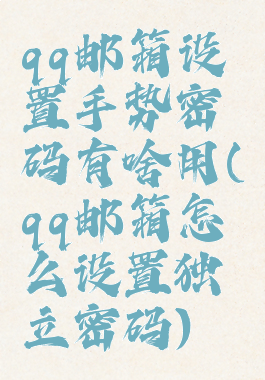 qq邮箱设
置手势密
码有啥用(
qq邮箱怎
么设置独
立密码)